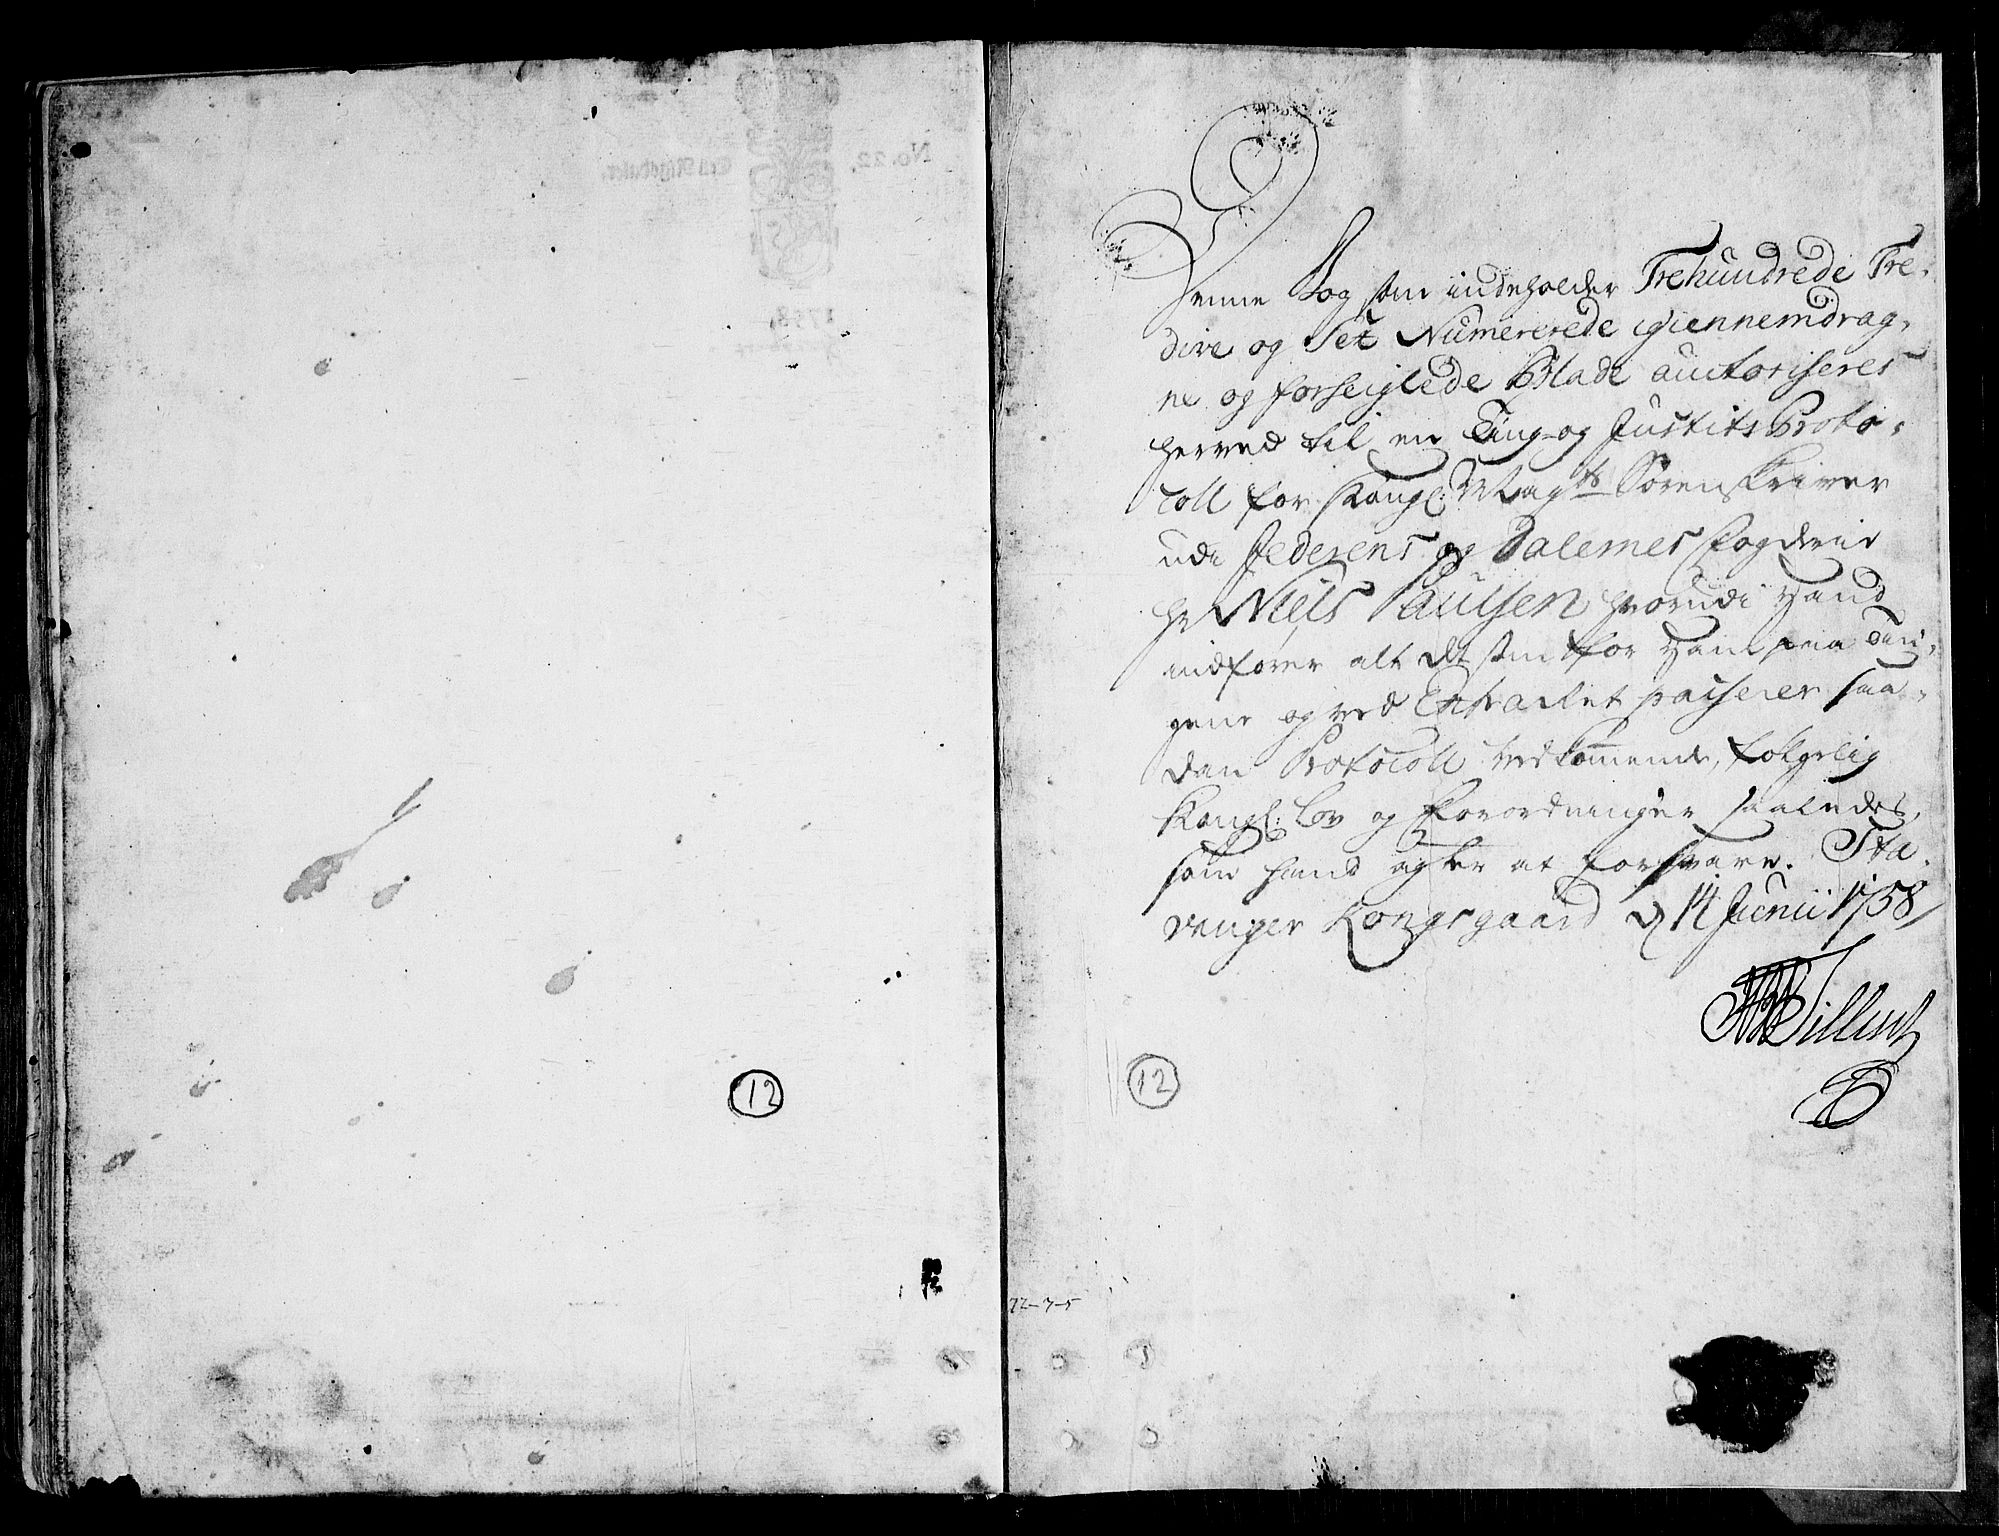 Denne Bog som indeholder Trehundrede Tre-
dive og Sex Numererede igiennemdrag-
ne og forseiglede Blade auctoriseres
herved til en Ting- og Justits Proto-
coll for Kongl: Mayts Sørenskriver
udi Jederens og Dalernes Fogderie
Hr Niels Paulsen hvorudi Hand
indfører alt det som for Ham paa Tin-
gene og ved Extraret passerer saa-
dan Protocoll vedkommende, følgelig
Kongl: Lov og Forordninger saaledes,
som hand agter at forsvare. Sta-
vanger Kongsgaard d 14 Junii 1758
12
12